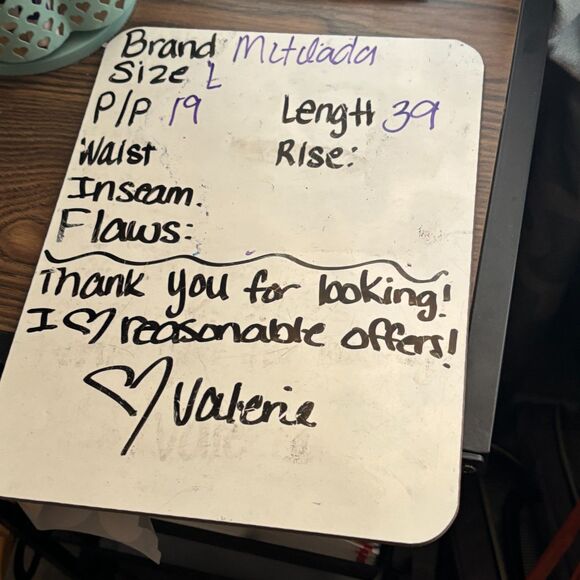 Brand Mitilada
Size L
P/P 19 Length 39
Waist Rise:
Inseam.
Flaws:
Thank you for looking!
I ♡ reasonable offers!
♡ Valerie